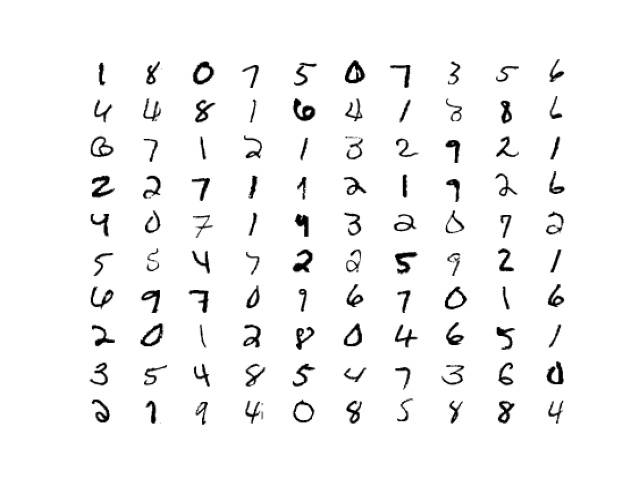 1 8 0 7 5 0 7 3 5 6
4 4 8 1 6 4 1 8 8 6
6 7 1 2 1 3 2 9 2 1
2 2 7 1 1 2 1 9 2 6
4 0 7 1 9 3 2 0 7 2
5 5 4 7 2 2 5 9 2 1
6 9 7 0 9 6 7 0 1 6
2 0 1 2 8 0 4 6 5 1
3 5 4 8 5 4 7 3 6 0
2 1 9 4 0 8 5 8 8 4